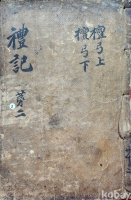 檀弓上
檀弓下
禮記
kobay